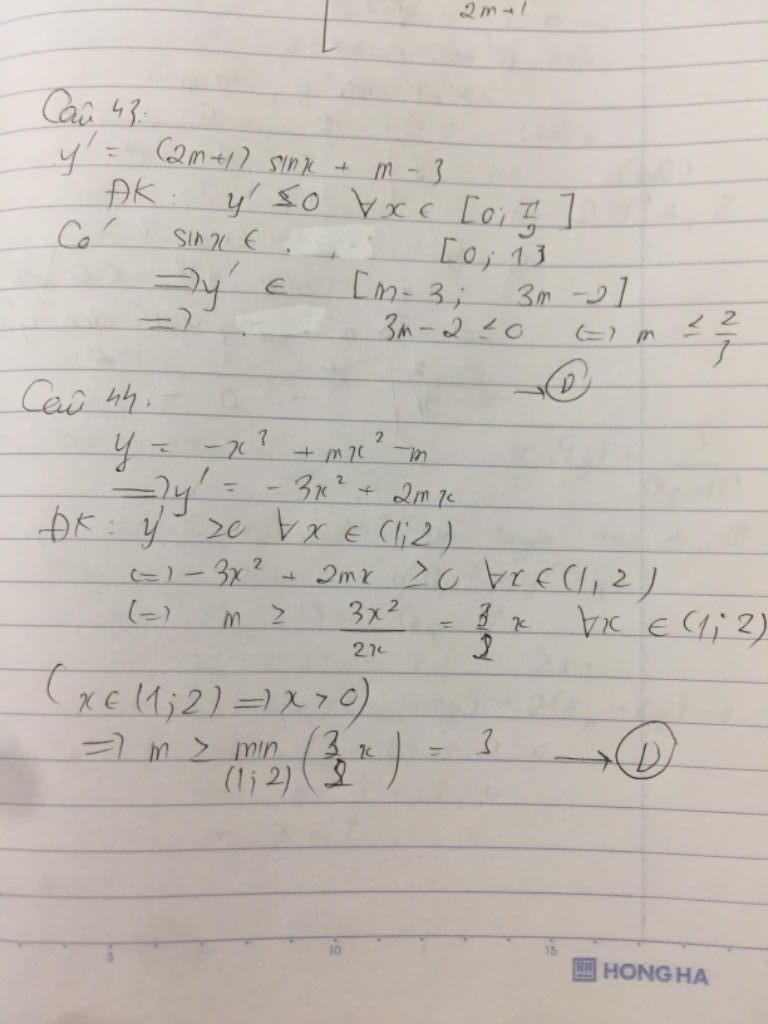 2m+1
Câu 43:
y' = (2m+1) sinx + m - 3
ĐK: y' ≤ 0 ∀x ∈ [0; π/2]
Có sinx ∈ [0; 1]
=> y' ∈ [m-3; 3m-2]
=> 3m-2 ≤ 0 <=> m ≤ 2/3
→ D
Câu 44:
y = -x³ + mx² - m
=> y' = -3x² + 2mx
ĐK: y' ≥0 ∀x ∈ (1;2)
<=> -3x² + 2mx ≥ 0 ∀x ∈ (1;2)
<=> m ≥ 3x²/2x = 3/2 x ∀x ∈ (1;2)
(x ∈ (1;2) => x > 0)
=> m ≥ min (1;2) (3/2 x) = 3 → D
5 10 15
HONG HA